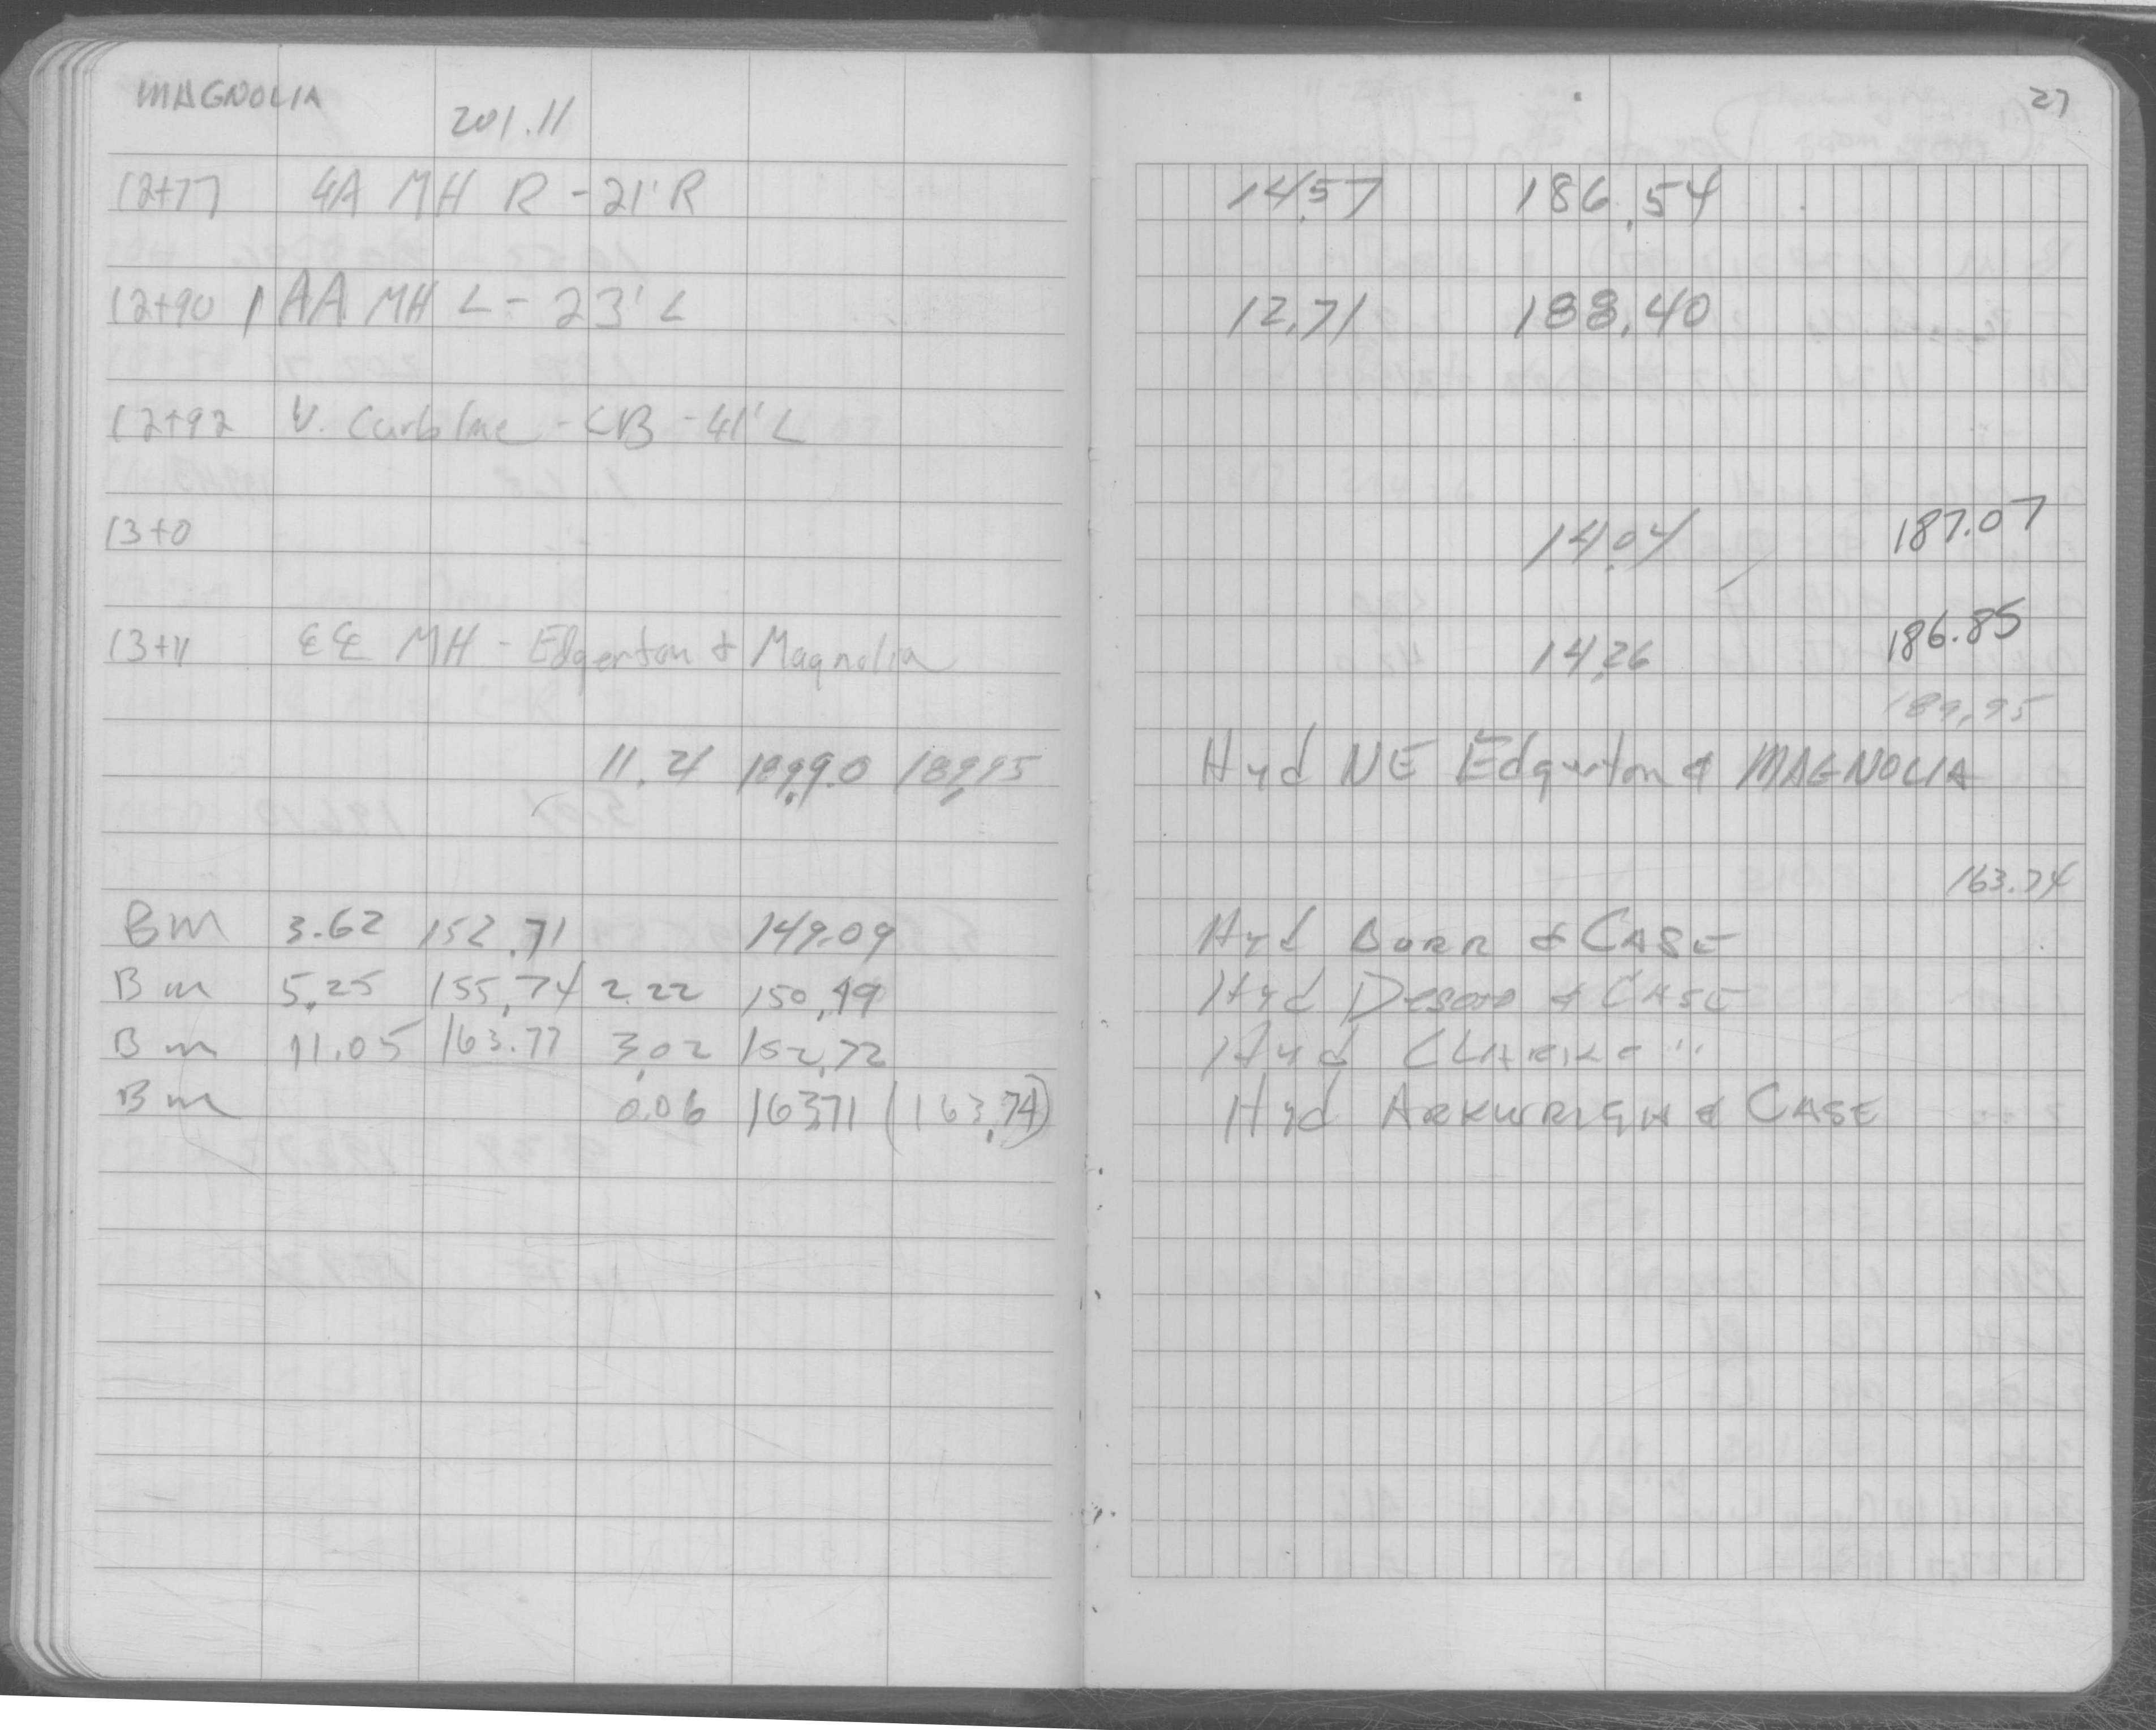 MAGNOLIA
201.11
27
12+77 4A MH R - 21' R 14.57 186.54
12+90 AA MH L - 23' L 12.71 188.40
12+92 V. Curb line - CB - 41' L
13+0 14.04 187.07
13+11 MH - Edgerton & Magnolia 14.26 186.85
189.95
11.21 189.90 189.95 Hyd NE Edgerton & MAGNOLIA
163.74
BM 3.62 152.71 149.09 Hyd BURR & CASE
BM 5.25 155.74 2.22 150.49 Hyd Desoto & CASE
BM 11.05 163.77 3.02 152.72 Hyd CLARKE "
BM 0.06 163.71 (163.74) Hyd ARKWRIGH & CASE